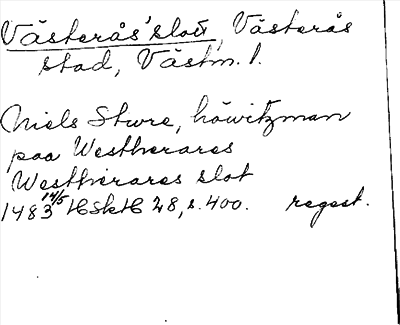 Västerås slott, Västerås
stad, Västm. l.
Niels Sture, höwitzman
paa Westhrarars
Westhrarars slot
1483 14/5 HSkH 28, s. 400. regest.